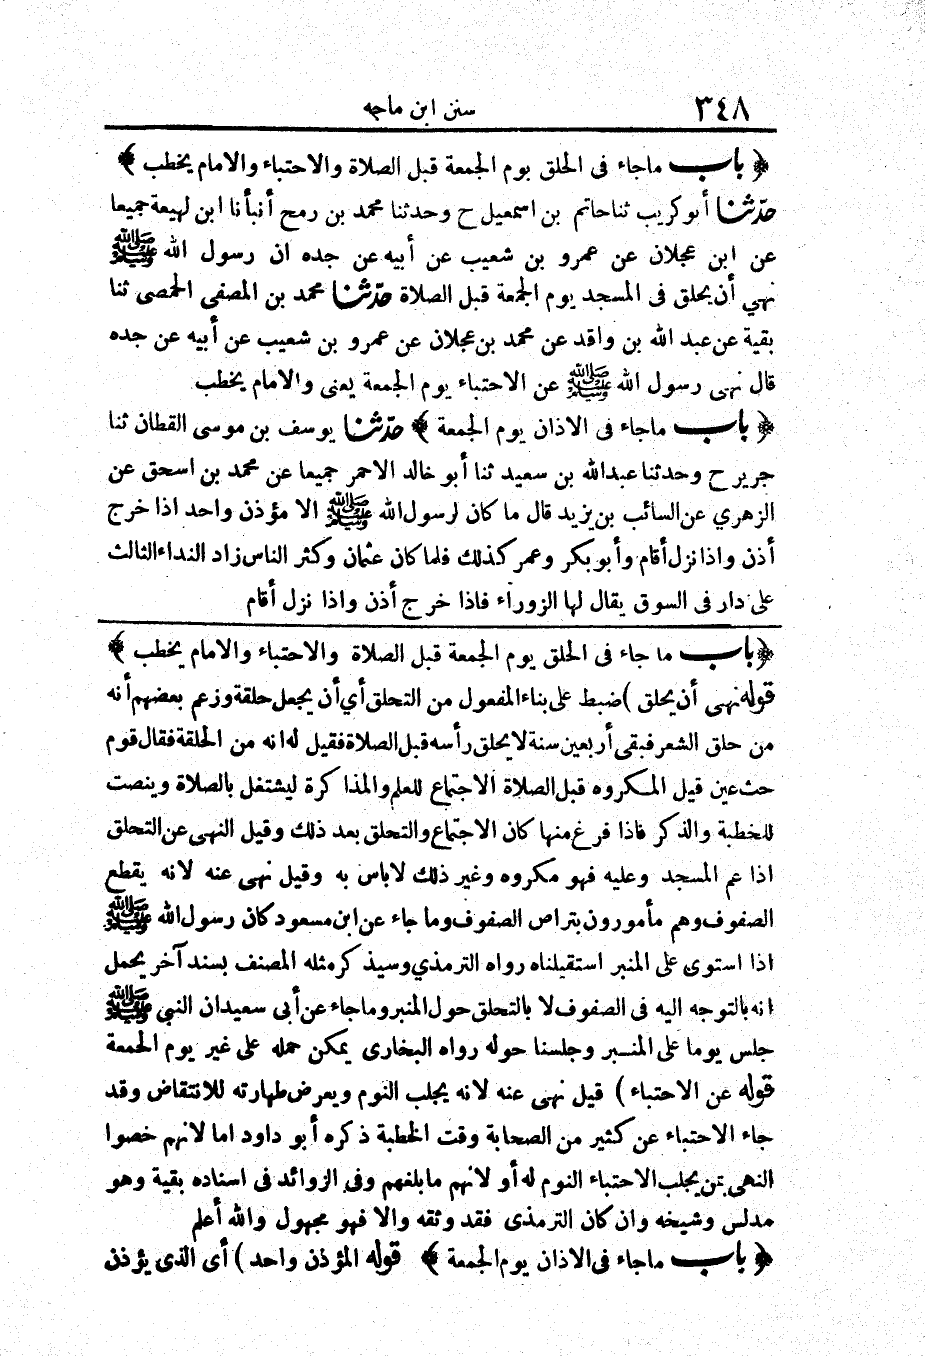 ٣٤٨ سنن ابن ماجه
﴿ باب ماجاء فى الحلق يوم الجمعة قبل الصلاة والاحتباء والامام يخطب ﴾
حدّثنا أبو كريب ثنا حاتم بن اسمعيل ح وحدثنا محمد بن رمح أنبأنا ابن لهيعة جميعا
عن ابن عجلان عن عمرو بن شعيب عن أبيه عن جده ان رسول الله ﷺ
نهي أن يحلق فى المسجد يوم الجمعة قبل الصلاة حدّثنا محمد بن المصفى الحمصى ثنا
بقية عن عبد الله بن واقد عن محمد بن عجلان عن عمرو بن شعيب عن أبيه عن جده
قال نهى رسول الله ﷺ عن الاحتباء يوم الجمعة يعنى والامام يخطب
﴿ باب ماجاء فى الاذان يوم الجمعة ﴾ حدّثنا يوسف بن موسى القطان ثنا
جرير ح وحدثنا عبدالله بن سعيد ثنا أبو خالد الاحمر جميعا عن محمد بن اسحق عن
الزهري عن السائب بن يزيد قال ما كان لرسول الله ﷺ الا مؤذن واحد اذا خرج
أذن واذا نزل أقام وأبو بكر وعمر كذلك فلما كان عثمان وكثر الناس زاد النداء الثالث
على دار فى السوق يقال لها الزوراء فاذا خرج أذن واذا نزل أقام
﴿ باب ما جاء فى الحلق يوم الجمعة قبل الصلاة والاحتباء والامام يخطب ﴾
قوله نهى أن يحلق ) ضبط على بناء المفعول من التحلق أي أن يجعل حلقة وزعم بعضهم أنه
من حلق الشعر فبقى أربعين سنة لا يحلق رأسه قبل الصلاة فقيل له انه من الحلقة فقال قوم
حث عين قيل المكروه قبل الصلاة الاجتماع للعلم والمذاكرة ليشتغل بالصلاة وينصت
للخطبة والذكر فاذا فرغ منها كان الاجتماع والتحلق بعد ذلك وقيل النهى عن التحلق
اذا عم المسجد وعليه فهو مكروه وغير ذلك لاباس به وقيل نهى عنه لانه يقطع
الصفوف وهم مأمورون بتراص الصفوف وما جاء عن ابن مسعود كان رسول الله ﷺ
اذا استوى على المنبر استقبلناه رواه الترمذي وسيذكر مثله المصنف بسند آخر يحمل
انه بالتوجه اليه فى الصفوف لا بالتحلق حول المنبر وما جاء عن أبى سعيد ان النبي ﷺ
جلس يوما على المنبر وجلسنا حوله رواه البخارى يمكن حمله على غير يوم الجمعة
قوله عن الاحتباء ) قيل نهى عنه لانه يجلب النوم ويعرض طهارته للانتقاض وقد
جاء الاحتباء عن كثير من الصحابة وقت الخطبة ذكره أبو داود اما لانهم خصوا
النهى بمن يجلب الاحتباء النوم له أو لانهم ما بلغهم وفى الزوائد فى اسناده بقية وهو
مدلس وشيخه وان كان الترمذى فقد وثقه والا فهو مجهول والله أعلم
﴿ باب ماجاء فى الاذان يوم الجمعة ﴾ قوله المؤذن واحد ) أى الذى يؤذن